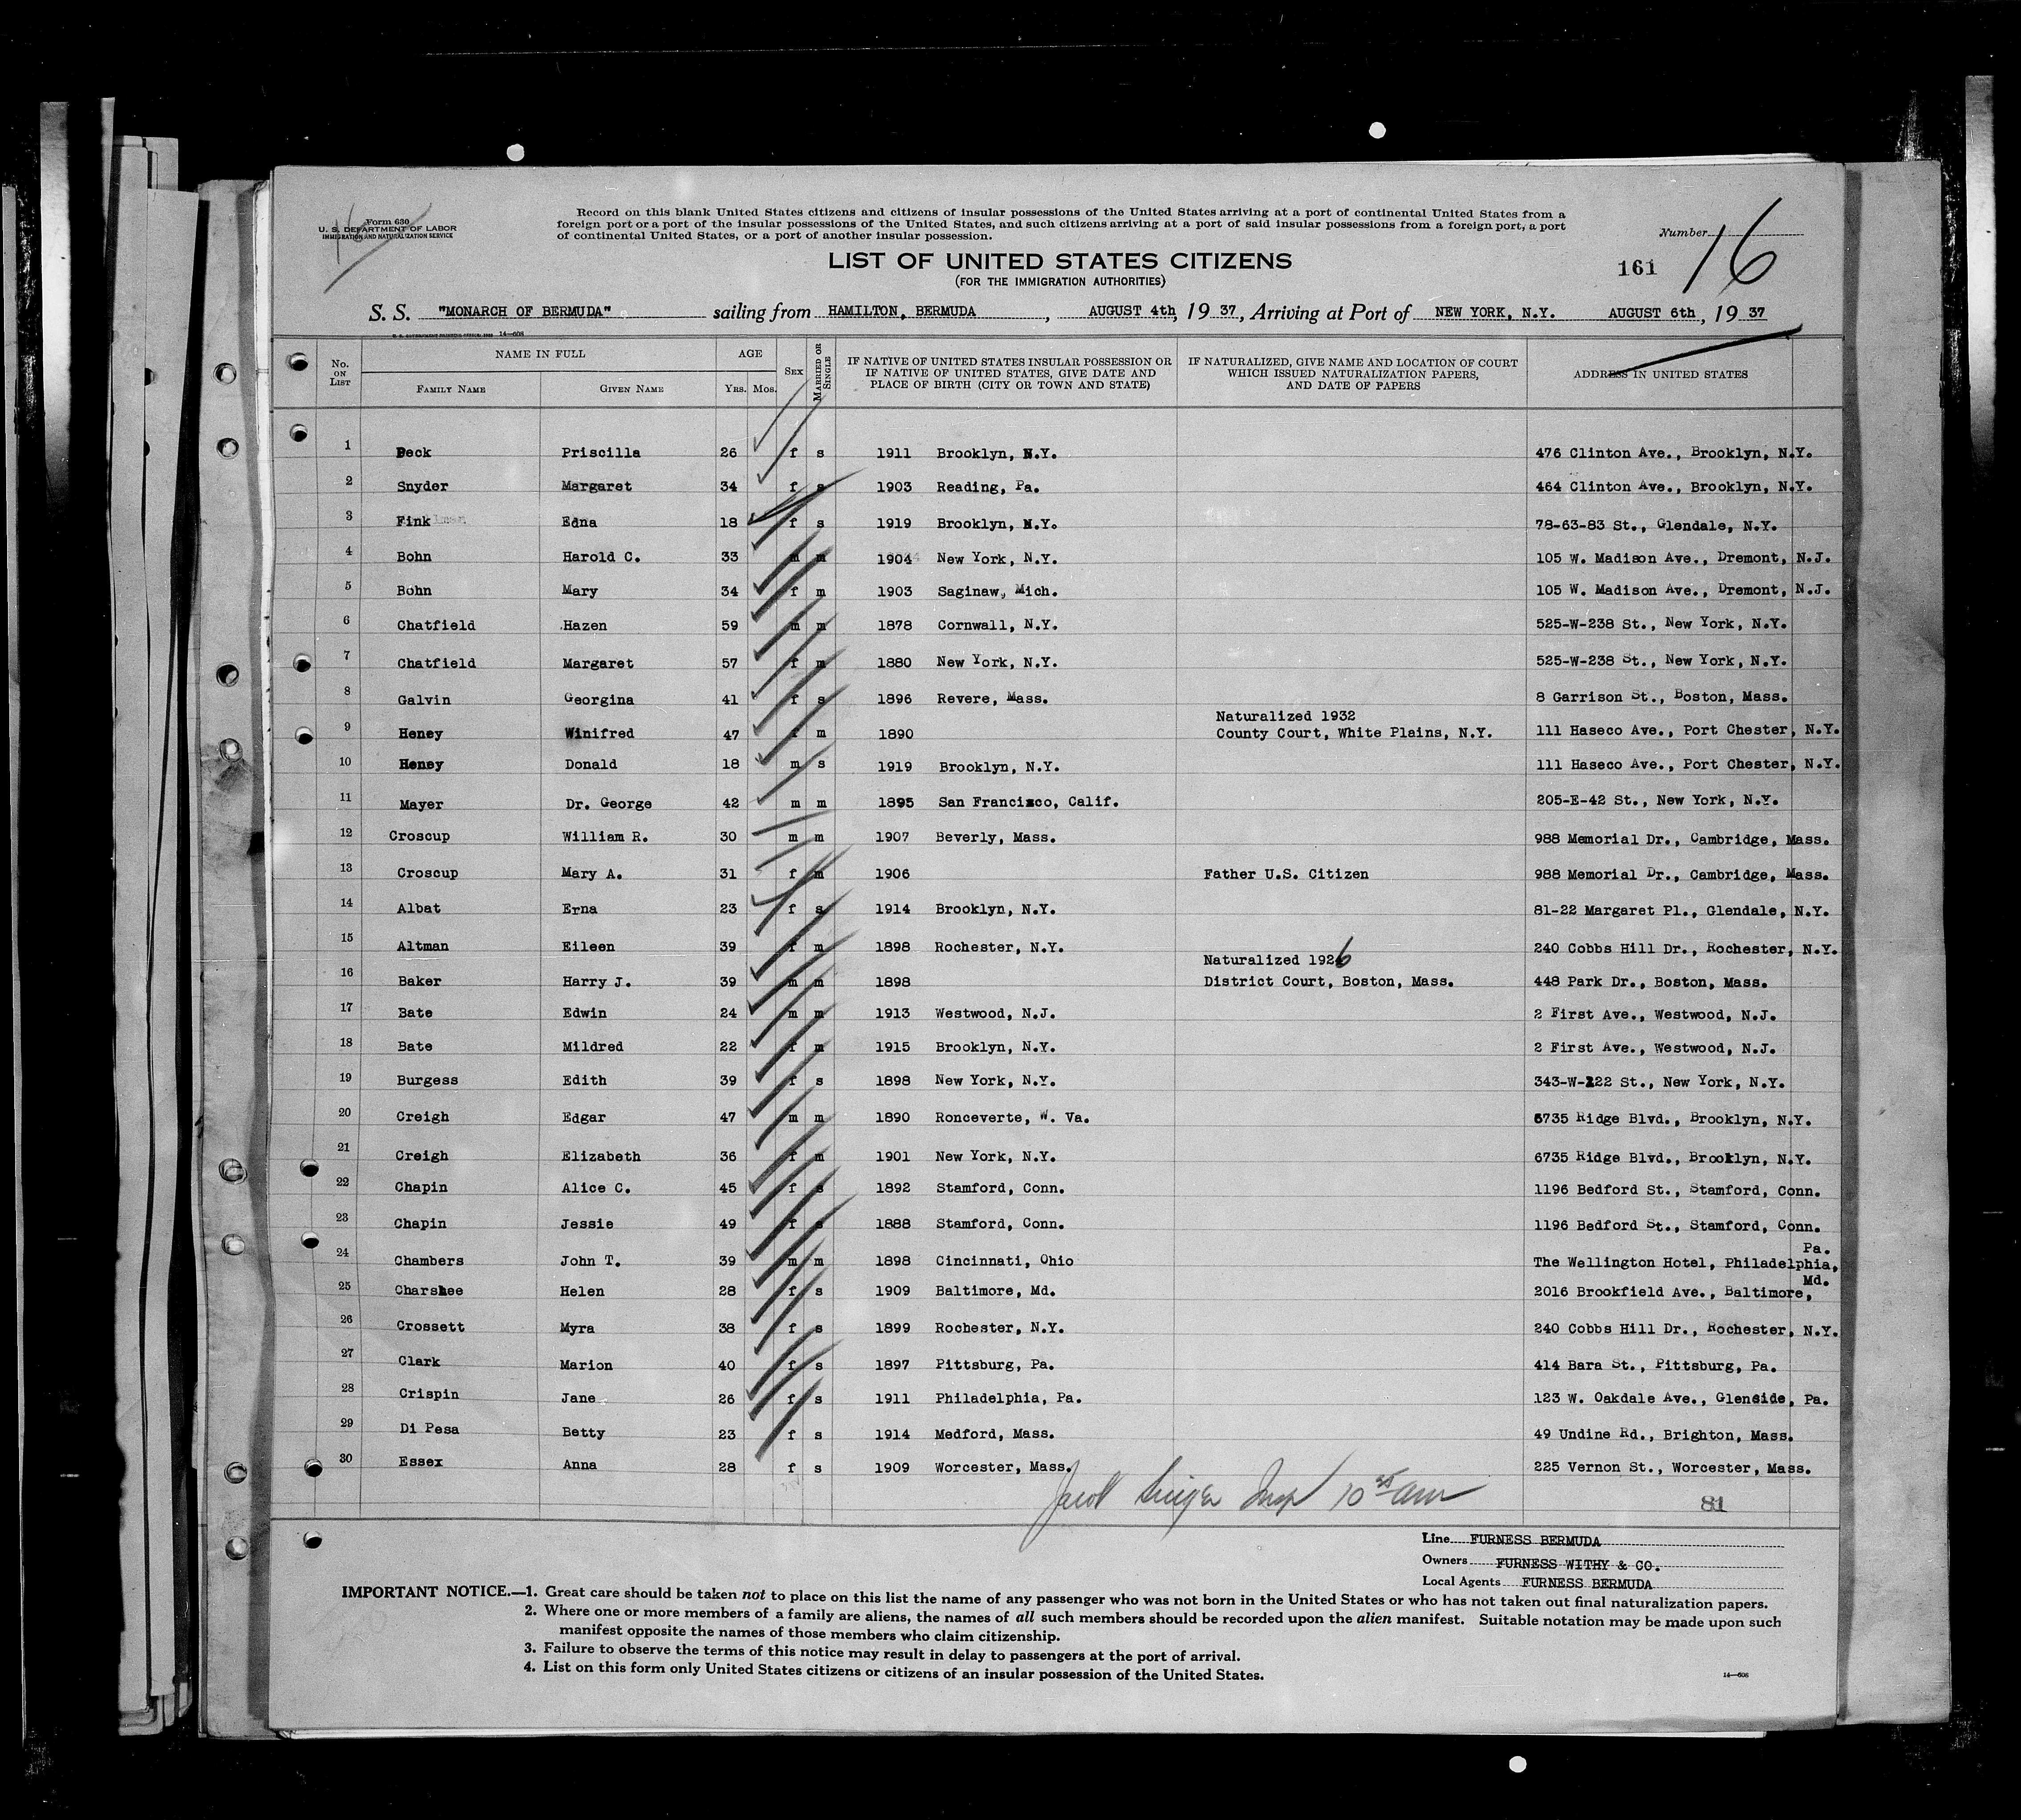 Form 630
U. S. DEPARTMENT OF LABOR
IMMIGRATION AND NATURALIZATION SERVICE
Record on this blank United States citizens and citizens of insular possessions of the United States arriving at a port of continental United States from a
foreign port or a port of the insular possessions of the United States, and such citizens arriving at a port of said insular possessions from a foreign port, a port
of continental United States, or a port of another insular possession.
Number 16
LIST OF UNITED STATES CITIZENS
161
(FOR THE IMMIGRATION AUTHORITIES)
S. S. "MONARCH OF BERMUDA" sailing from HAMILTON, BERMUDA, AUGUST 4th, 19 37, Arriving at Port of NEW YORK, N.Y. AUGUST 6th, 19 37
14—608
No. ON LIST NAME IN FULL FAMILY NAME GIVEN NAME AGE YRS. MOS. SEX MARRIED OR SINGLE IF NATIVE OF UNITED STATES INSULAR POSSESSION OR IF NATIVE OF UNITED STATES, GIVE DATE AND PLACE OF BIRTH (CITY OR TOWN AND STATE) IF NATURALIZED, GIVE NAME AND LOCATION OF COURT WHICH ISSUED NATURALIZATION PAPERS, AND DATE OF PAPERS ADDRESS IN UNITED STATES
1 Peck Priscilla 26 f s 1911 Brooklyn, N.Y. 476 Clinton Ave., Brooklyn, N.Y.
2 Snyder Margaret 34 f s 1903 Reading, Pa. 464 Clinton Ave., Brooklyn, N.Y.
3 Fink Edna 18 f s 1919 Brooklyn, N.Y. 78-63-83 St., Glendale, N.Y.
4 Bohn Harold C. 33 m m 1904 New York, N.Y. 105 W. Madison Ave., Dremont, N.J.
5 Bohn Mary 34 f m 1903 Saginaw, Mich. 105 W. Madison Ave., Dremont, N.J.
6 Chatfield Hazen 59 m m 1878 Cornwall, N.Y. 525-W-238 St., New York, N.Y.
7 Chatfield Margaret 57 f m 1880 New York, N.Y. 525-W-238 St., New York, N.Y.
8 Galvin Georgina 41 f s 1896 Revere, Mass. 8 Garrison St., Boston, Mass.
Naturalized 1932
9 Heney Winifred 47 f m 1890 County Court, White Plains, N.Y. 111 Haseco Ave., Port Chester, N.Y.
10 Heney Donald 18 m s 1919 Brooklyn, N.Y. 111 Haseco Ave., Port Chester, N.Y.
11 Mayer Dr. George 42 m m 1895 San Francisco, Calif. 205-E-42 St., New York, N.Y.
12 Croscup William R. 30 m m 1907 Beverly, Mass. 988 Memorial Dr., Cambridge, Mass.
13 Croscup Mary A. 31 f m 1906 Father U.S. Citizen 988 Memorial Dr., Cambridge, Mass.
14 Albat Erna 23 f s 1914 Brooklyn, N.Y. 81-22 Margaret Pl., Glendale, N.Y.
15 Altman Eileen 39 f m 1898 Rochester, N.Y. 240 Cobbs Hill Dr., Rochester, N.Y.
Naturalized 1926
16 Baker Harry J. 39 m m 1898 District Court, Boston, Mass. 448 Park Dr., Boston, Mass.
17 Bate Edwin 24 m m 1913 Westwood, N.J. 2 First Ave., Westwood, N.J.
18 Bate Mildred 22 f m 1915 Brooklyn, N.Y. 2 First Ave., Westwood, N.J.
19 Burgess Edith 39 f s 1898 New York, N.Y. 343-W-122 St., New York, N.Y.
20 Creigh Edgar 47 m m 1890 Ronceverte, W. Va. 6735 Ridge Blvd., Brooklyn, N.Y.
21 Creigh Elizabeth 36 f m 1901 New York, N.Y. 6735 Ridge Blvd., Brooklyn, N.Y.
22 Chapin Alice C. 45 f s 1892 Stamford, Conn. 1196 Bedford St., Stamford, Conn.
23 Chapin Jessie 49 f s 1888 Stamford, Conn. 1196 Bedford St., Stamford, Conn.
24 Chambers John T. 39 m m 1898 Cincinnati, Ohio The Wellington Hotel, Philadelphia, Pa.
25 Charshee Helen 28 f s 1909 Baltimore, Md. 2016 Brookfield Ave., Baltimore, Md.
26 Crossett Myra 38 f s 1899 Rochester, N.Y. 240 Cobbs Hill Dr., Rochester, N.Y.
27 Clark Marion 40 f s 1897 Pittsburg, Pa. 414 Bara St., Pittsburg, Pa.
28 Crispin Jane 26 f s 1911 Philadelphia, Pa. 123 W. Oakdale Ave., Glenside, Pa.
29 Di Pesa Betty 23 f s 1914 Medford, Mass. 49 Undine Rd., Brighton, Mass.
30 Essex Anna 28 f s 1909 Worcester, Mass. 225 Vernon St., Worcester, Mass.
Jacob Insp 10 am
81
Line FURNESS BERMUDA
Owners FURNESS WITHY & CO.
Local Agents FURNESS BERMUDA
IMPORTANT NOTICE.—1. Great care should be taken not to place on this list the name of any passenger who was not born in the United States or who has not taken out final naturalization papers.
2. Where one or more members of a family are aliens, the names of all such members should be recorded upon the alien manifest. Suitable notation may be made upon such
manifest opposite the names of those members who claim citizenship.
3. Failure to observe the terms of this notice may result in delay to passengers at the port of arrival.
4. List on this form only United States citizens or citizens of an insular possession of the United States.
14—608